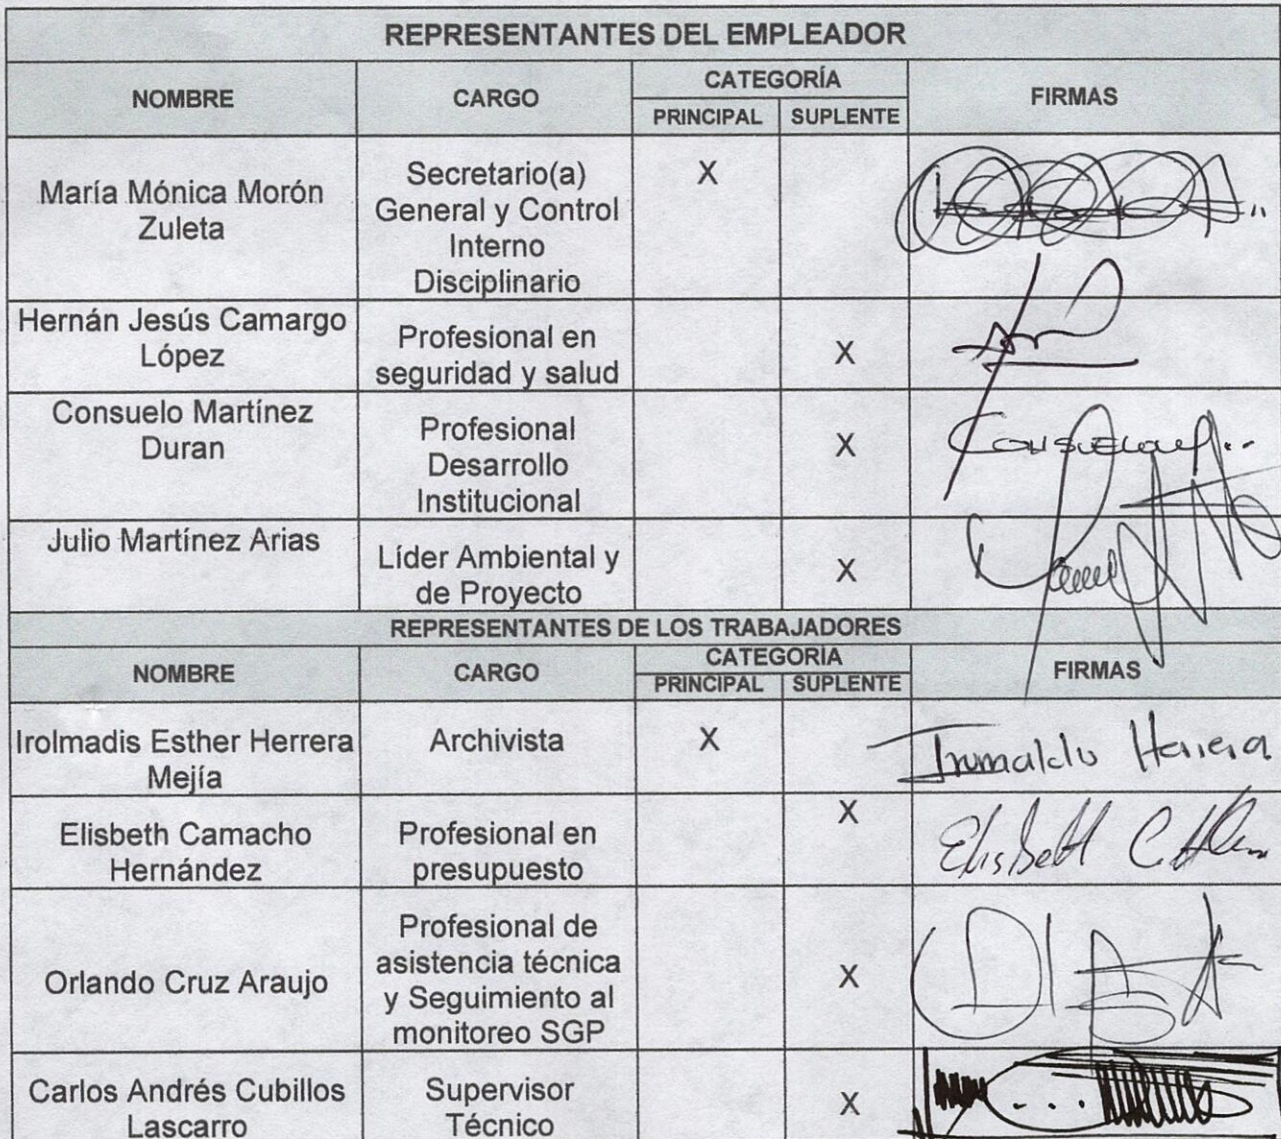 REPRESENTANTES DEL EMPLEADOR
NOMBRE CARGO CATEGORÍA FIRMAS
PRINCIPAL SUPLENTE
María Mónica Morón
Zuleta
Secretario(a)
General y Control
Interno
Disciplinario
X
Hernán Jesús Camargo
López
Profesional en
seguridad y salud
X
Consuelo Martínez
Duran
Profesional
Desarrollo
Institucional
X
Consuelo
Julio Martínez Arias
Líder Ambiental y
de Proyecto
X
REPRESENTANTES DE LOS TRABAJADORES
NOMBRE CARGO CATEGORIA FIRMAS
PRINCIPAL SUPLENTE
Irolmadis Esther Herrera
Mejía
Archivista
X
Herrera
Elisbeth Camacho
Hernández
Profesional en
presupuesto
X
Elisbeth C.
Orlando Cruz Araujo
Profesional de
asistencia técnica
y Seguimiento al
monitoreo SGP
X
Carlos Andrés Cubillos
Lascarro
Supervisor
Técnico
X